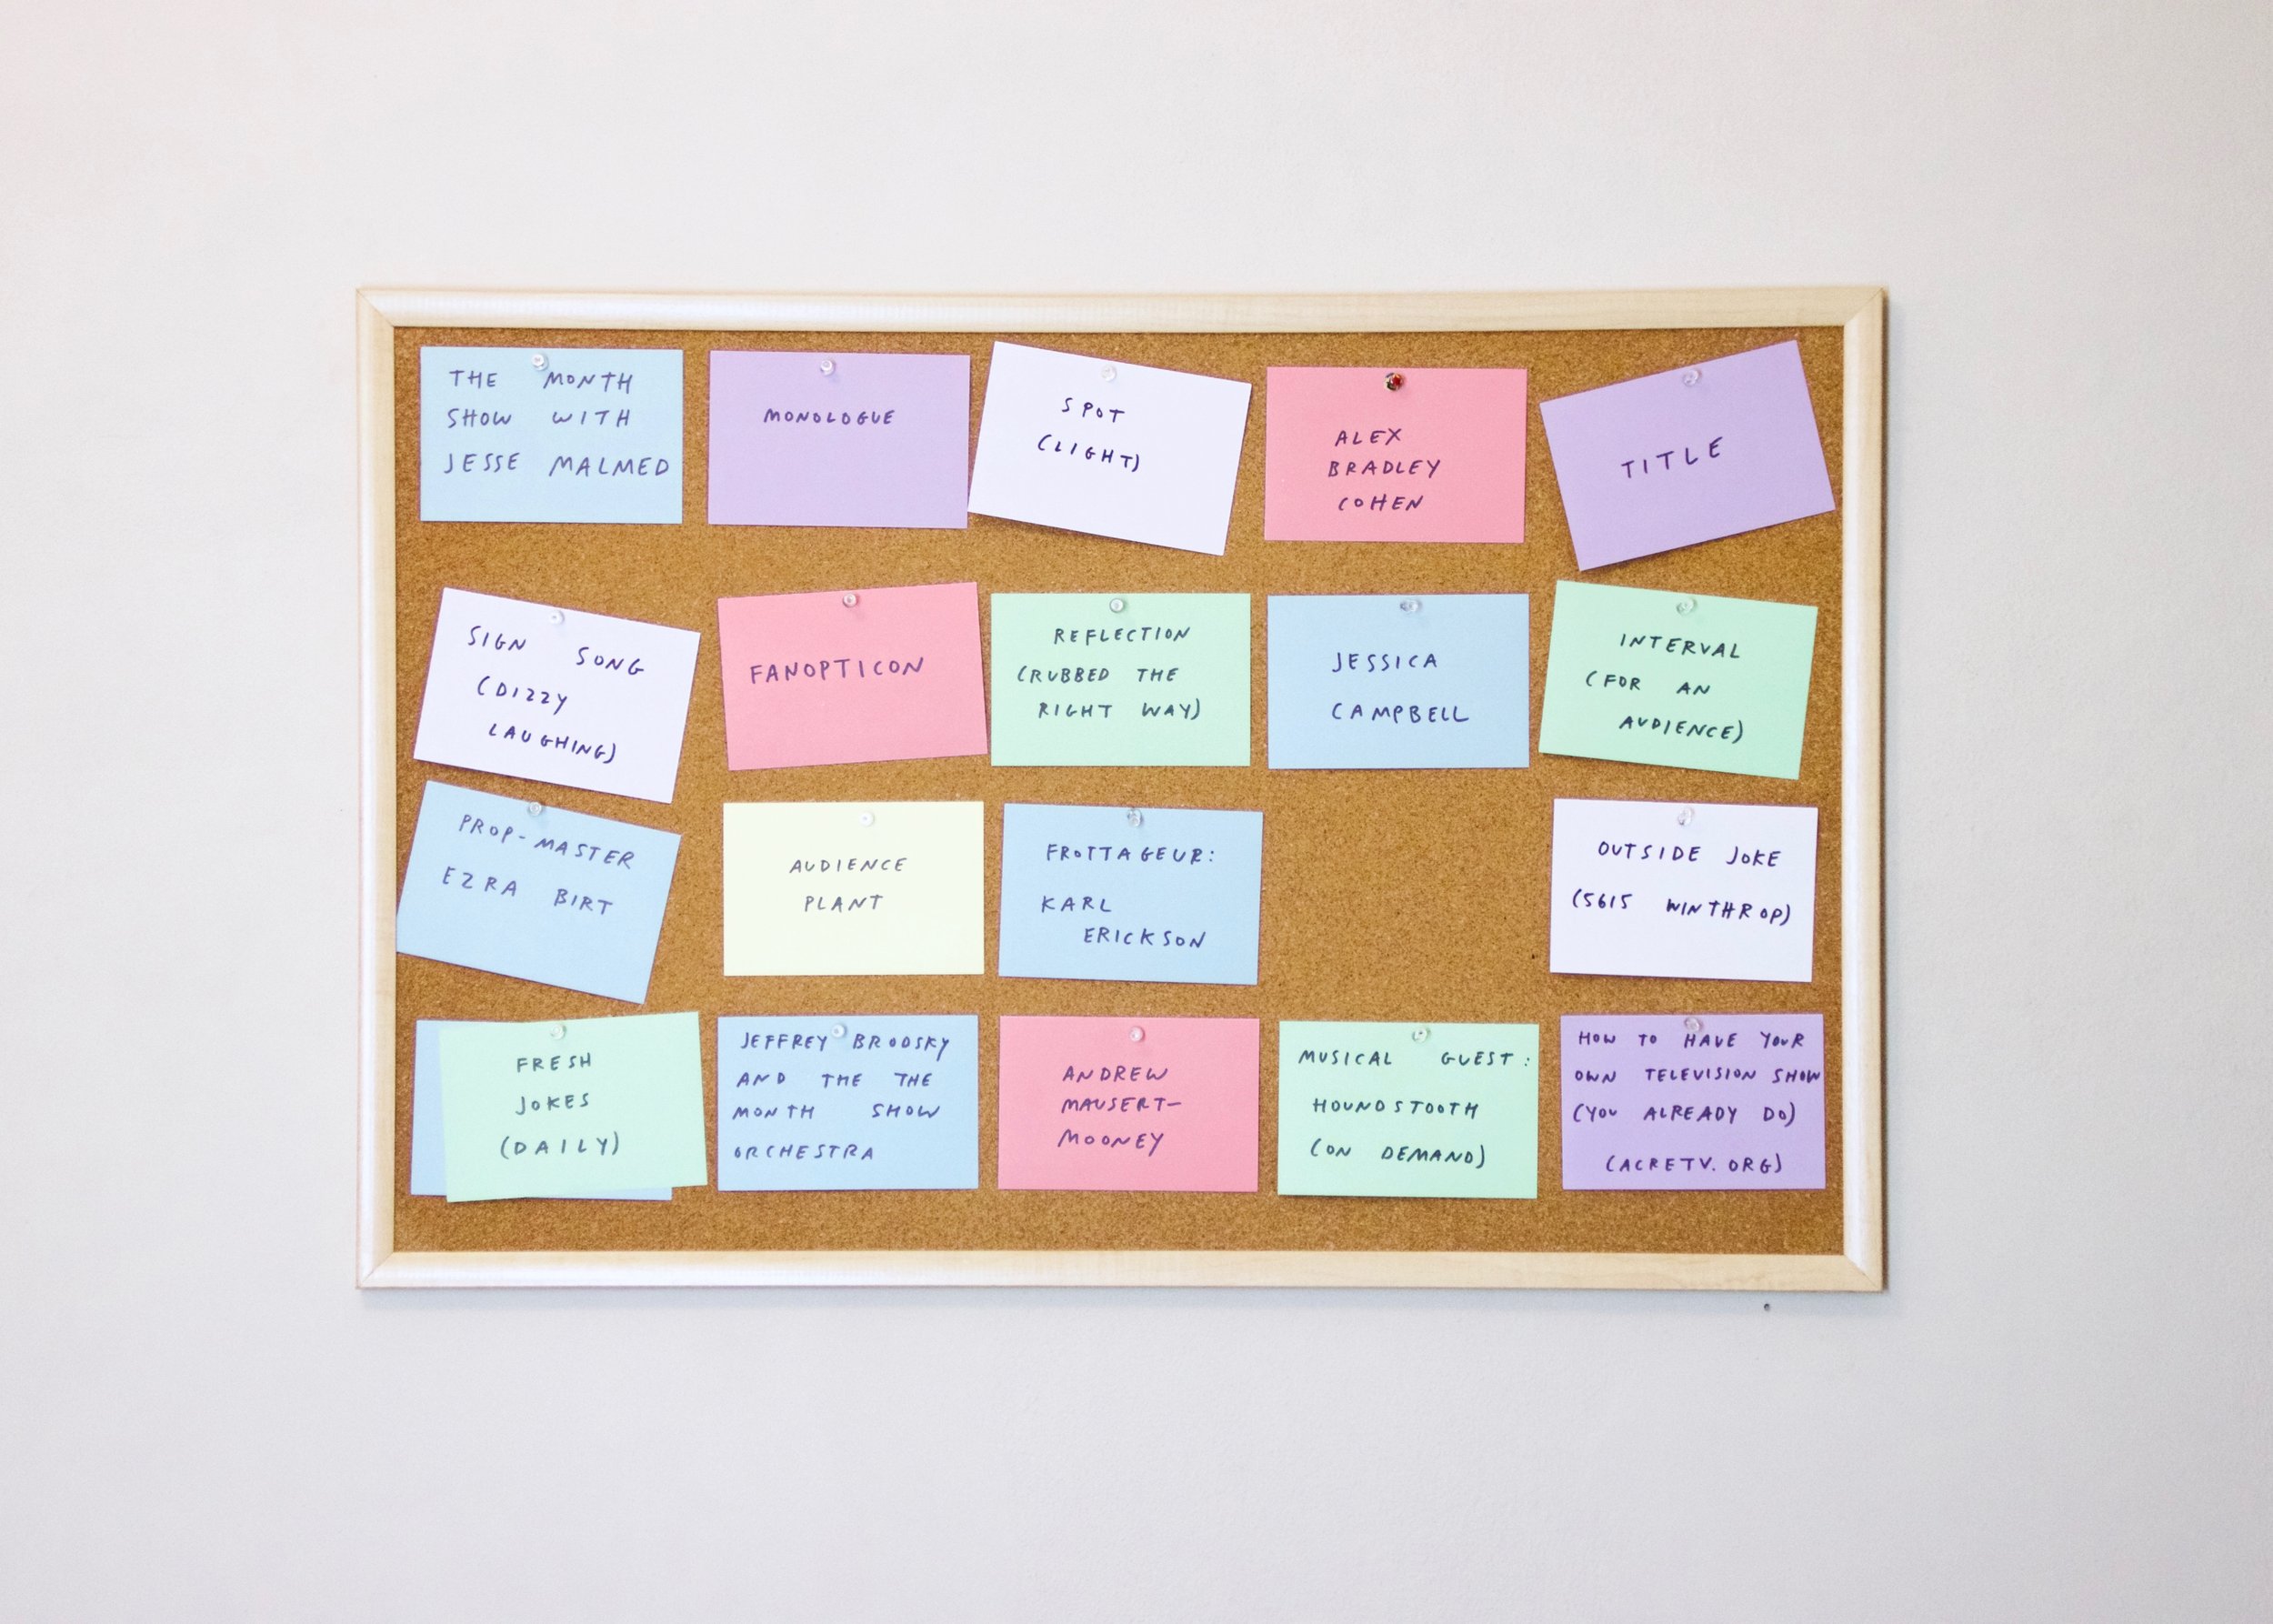 THE MONTH
SHOW WITH
JESSE MALMED
MONOLOGUE
SPOT
(LIGHT)
ALEX
BRADLEY
COHEN
TITLE
SIGN SONG
(DIZZY
LAUGHING)
FANOPTICON
REFLECTION
(RUBBED THE
RIGHT WAY)
JESSICA
CAMPBELL
INTERVAL
(FOR AN
AUDIENCE)
PROP-MASTER
EZRA BIRT
AUDIENCE
PLANT
FROTTAGEUR:
KARL
ERICKSON
OUTSIDE JOKE
(5615 WINTHROP)
FRESH
JOKES
(DAILY)
JEFFREY BRODSKY
AND THE THE
MONTH SHOW
ORCHESTRA
ANDREW
MAUSERT-
MOONEY
MUSICAL GUEST:
HOUNDSTOOTH
(ON DEMAND)
HOW TO HAVE YOUR
OWN TELEVISION SHOW
(YOU ALREADY DO)
(ACRETV.ORG)